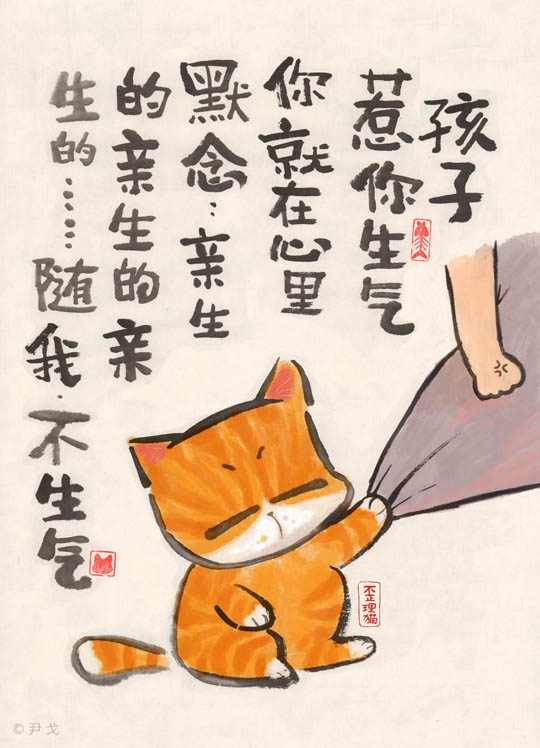 孩子
惹你生气
你就在心里
默念：亲生
的亲生的亲
生的……随
我·不生气
歪理猫
©尹戈